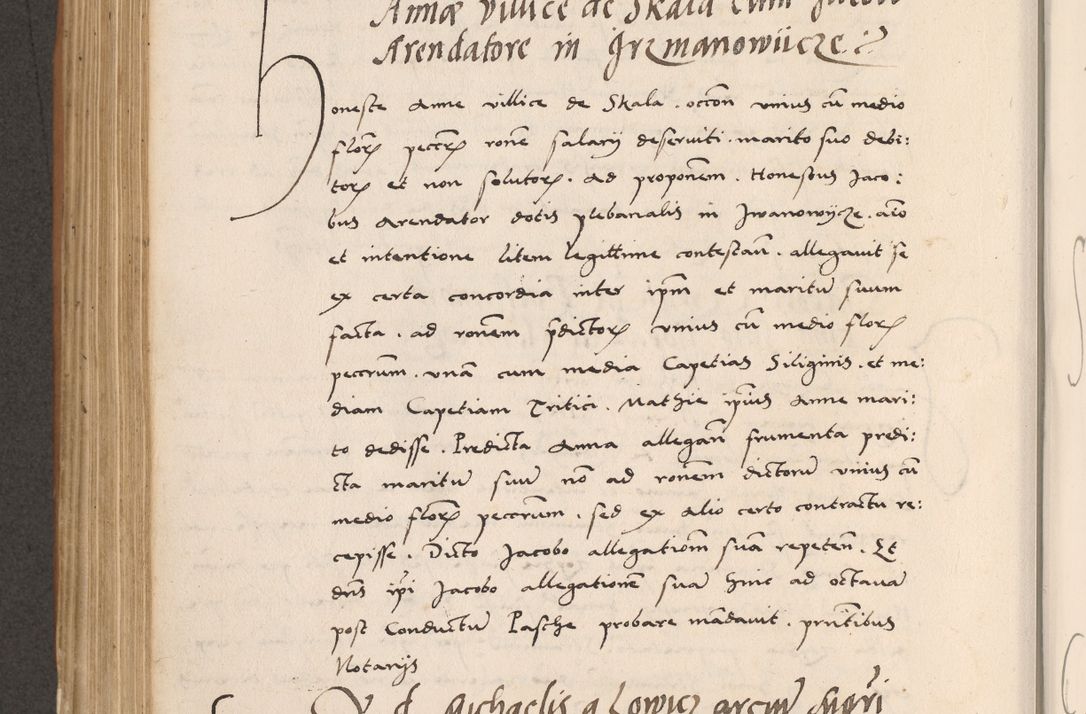 Annæ villice de Skala cum Jacobo
Arendatore in Jrzmanowiicze
Honeste Anne villice de Skala . occōn vnius cū medio
florꝝ peccrꝝ ronē salarÿ deseruiti . marito suo debi:
torꝝ et non solutorꝝ . Ad proponem̄ . Honestus Jaco:
bus Arendator dotis plebanalis in Jwanowÿcze . aīo
et intentione litem legittime contestan̄ . allegauit se
ex certa concordia inter ip̄m et maritū suum
facta . ad ronem̄ p̄dictorꝝ vnius cū medio florꝝ
peccrum . vnā cum media Capetias Siliginis . et me:
diam Capetiam Tritici . Mathie ip̄ius Anne mari:
to dedisse . Predicta Anna allegan̄ frumenta predi:
cta maritū suū nō ad ronem̄ dictorū vnius cū
medio florꝝ peccrum . sed ex Alio certo contractu re:
cepisse . Dicto Jacobo allegatiōm suā repeten̄ . Et
dn̄s ip̄i Jacobo allegationē suā hinc ad octauā
post Conductū Pasche probare mādauit . pn̄tibus
Notarÿs
Michaelis a Lowicz arciū Mgr̄i